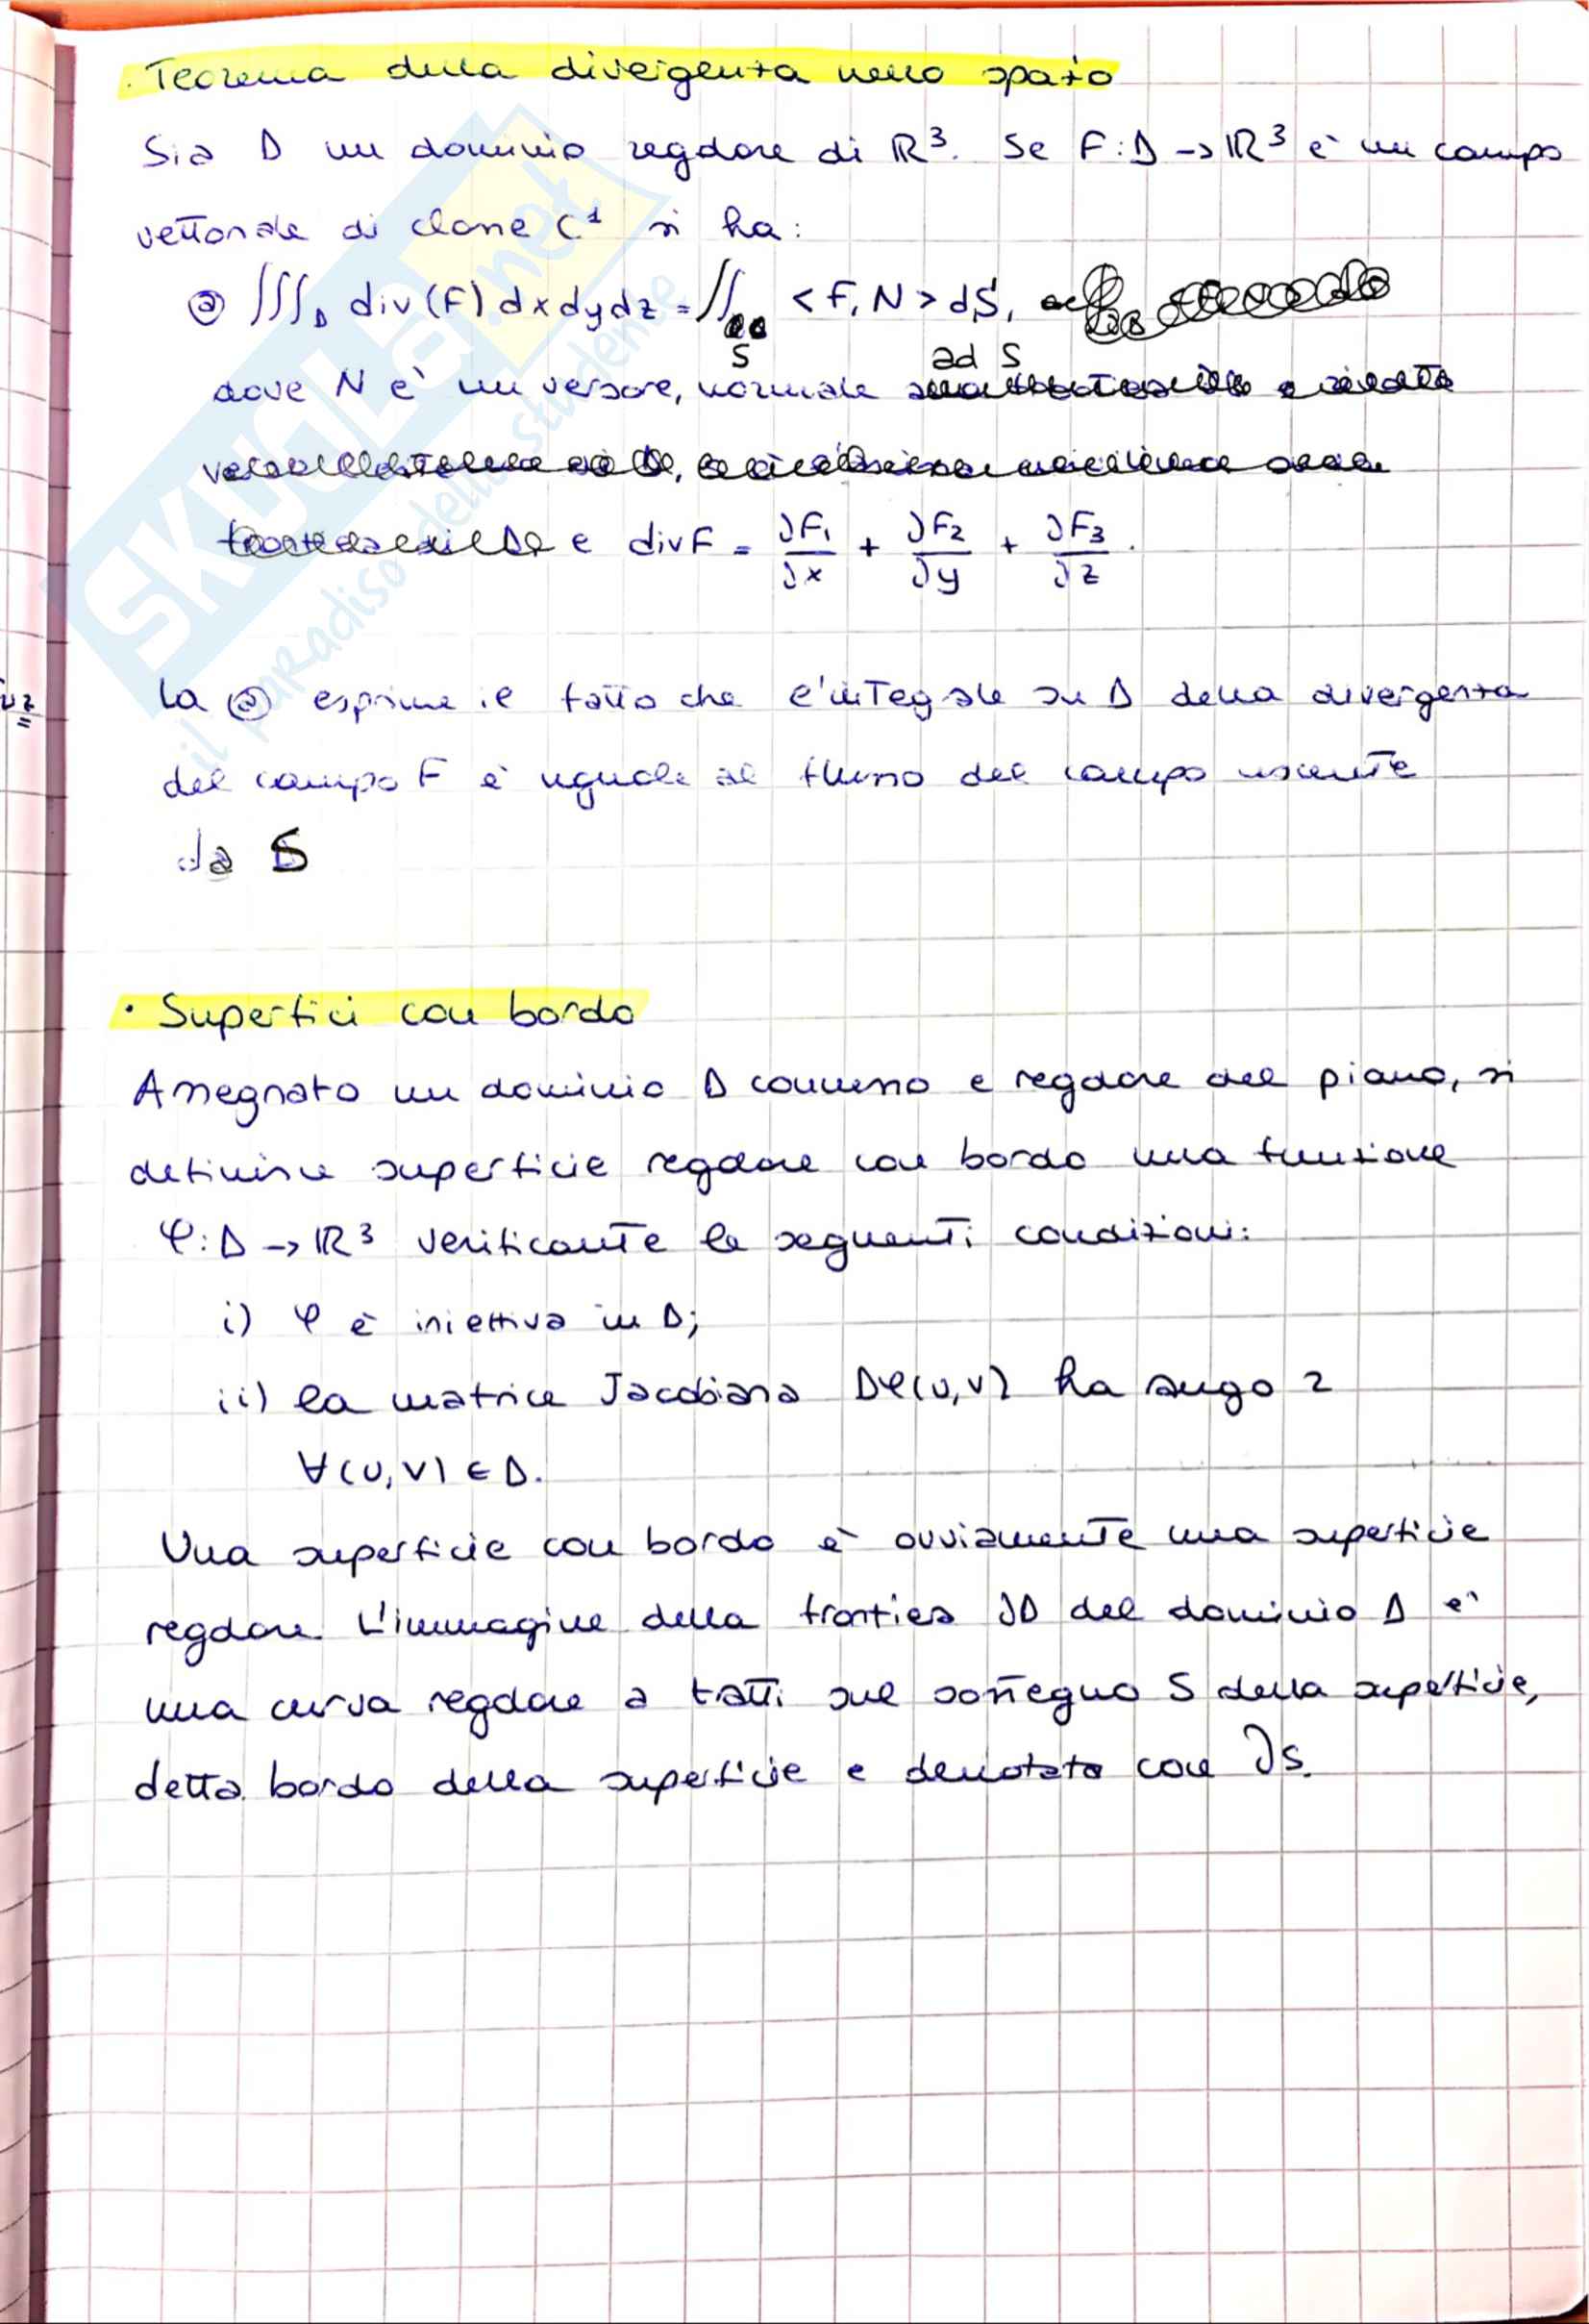 · Teorema della divergenza nello spazio
Sia D un dominio regolare di ℝ³. Se F: D -> ℝ³ è un campo
vettoriale di classe C¹ si ha:
ⓐ ∫∫∫_D div(F) dxdydz = ∫∫_S <F, N> dS,
ad S
dove N e' un versore, normale
e divF = ∂F₁/∂x + ∂F₂/∂y + ∂F₃/∂z.
La ⓐ esprime il fatto che l'integrale su D della divergenza
del campo F è uguale al flusso del campo uscente
da S
· Superfici con bordo
Assegnato un dominio D connesso e regolare del piano, si
definisce superficie regolare con bordo una funzione
φ: D -> ℝ³ verificante le seguenti condizioni:
i) φ è iniettiva in D;
ii) la matrice Jacobiana Dφ(u,v) ha rango 2
∀(u,v) ∈ D.
Una superficie con bordo è ovviamente una superficie
regolare. L'immagine della frontiera ∂D del dominio D e'
una curva regolare a tratti sul sostegno S della superficie,
detta bordo della superficie e denotata con ∂S.
SKUOLA.net
il paradiso dello studente